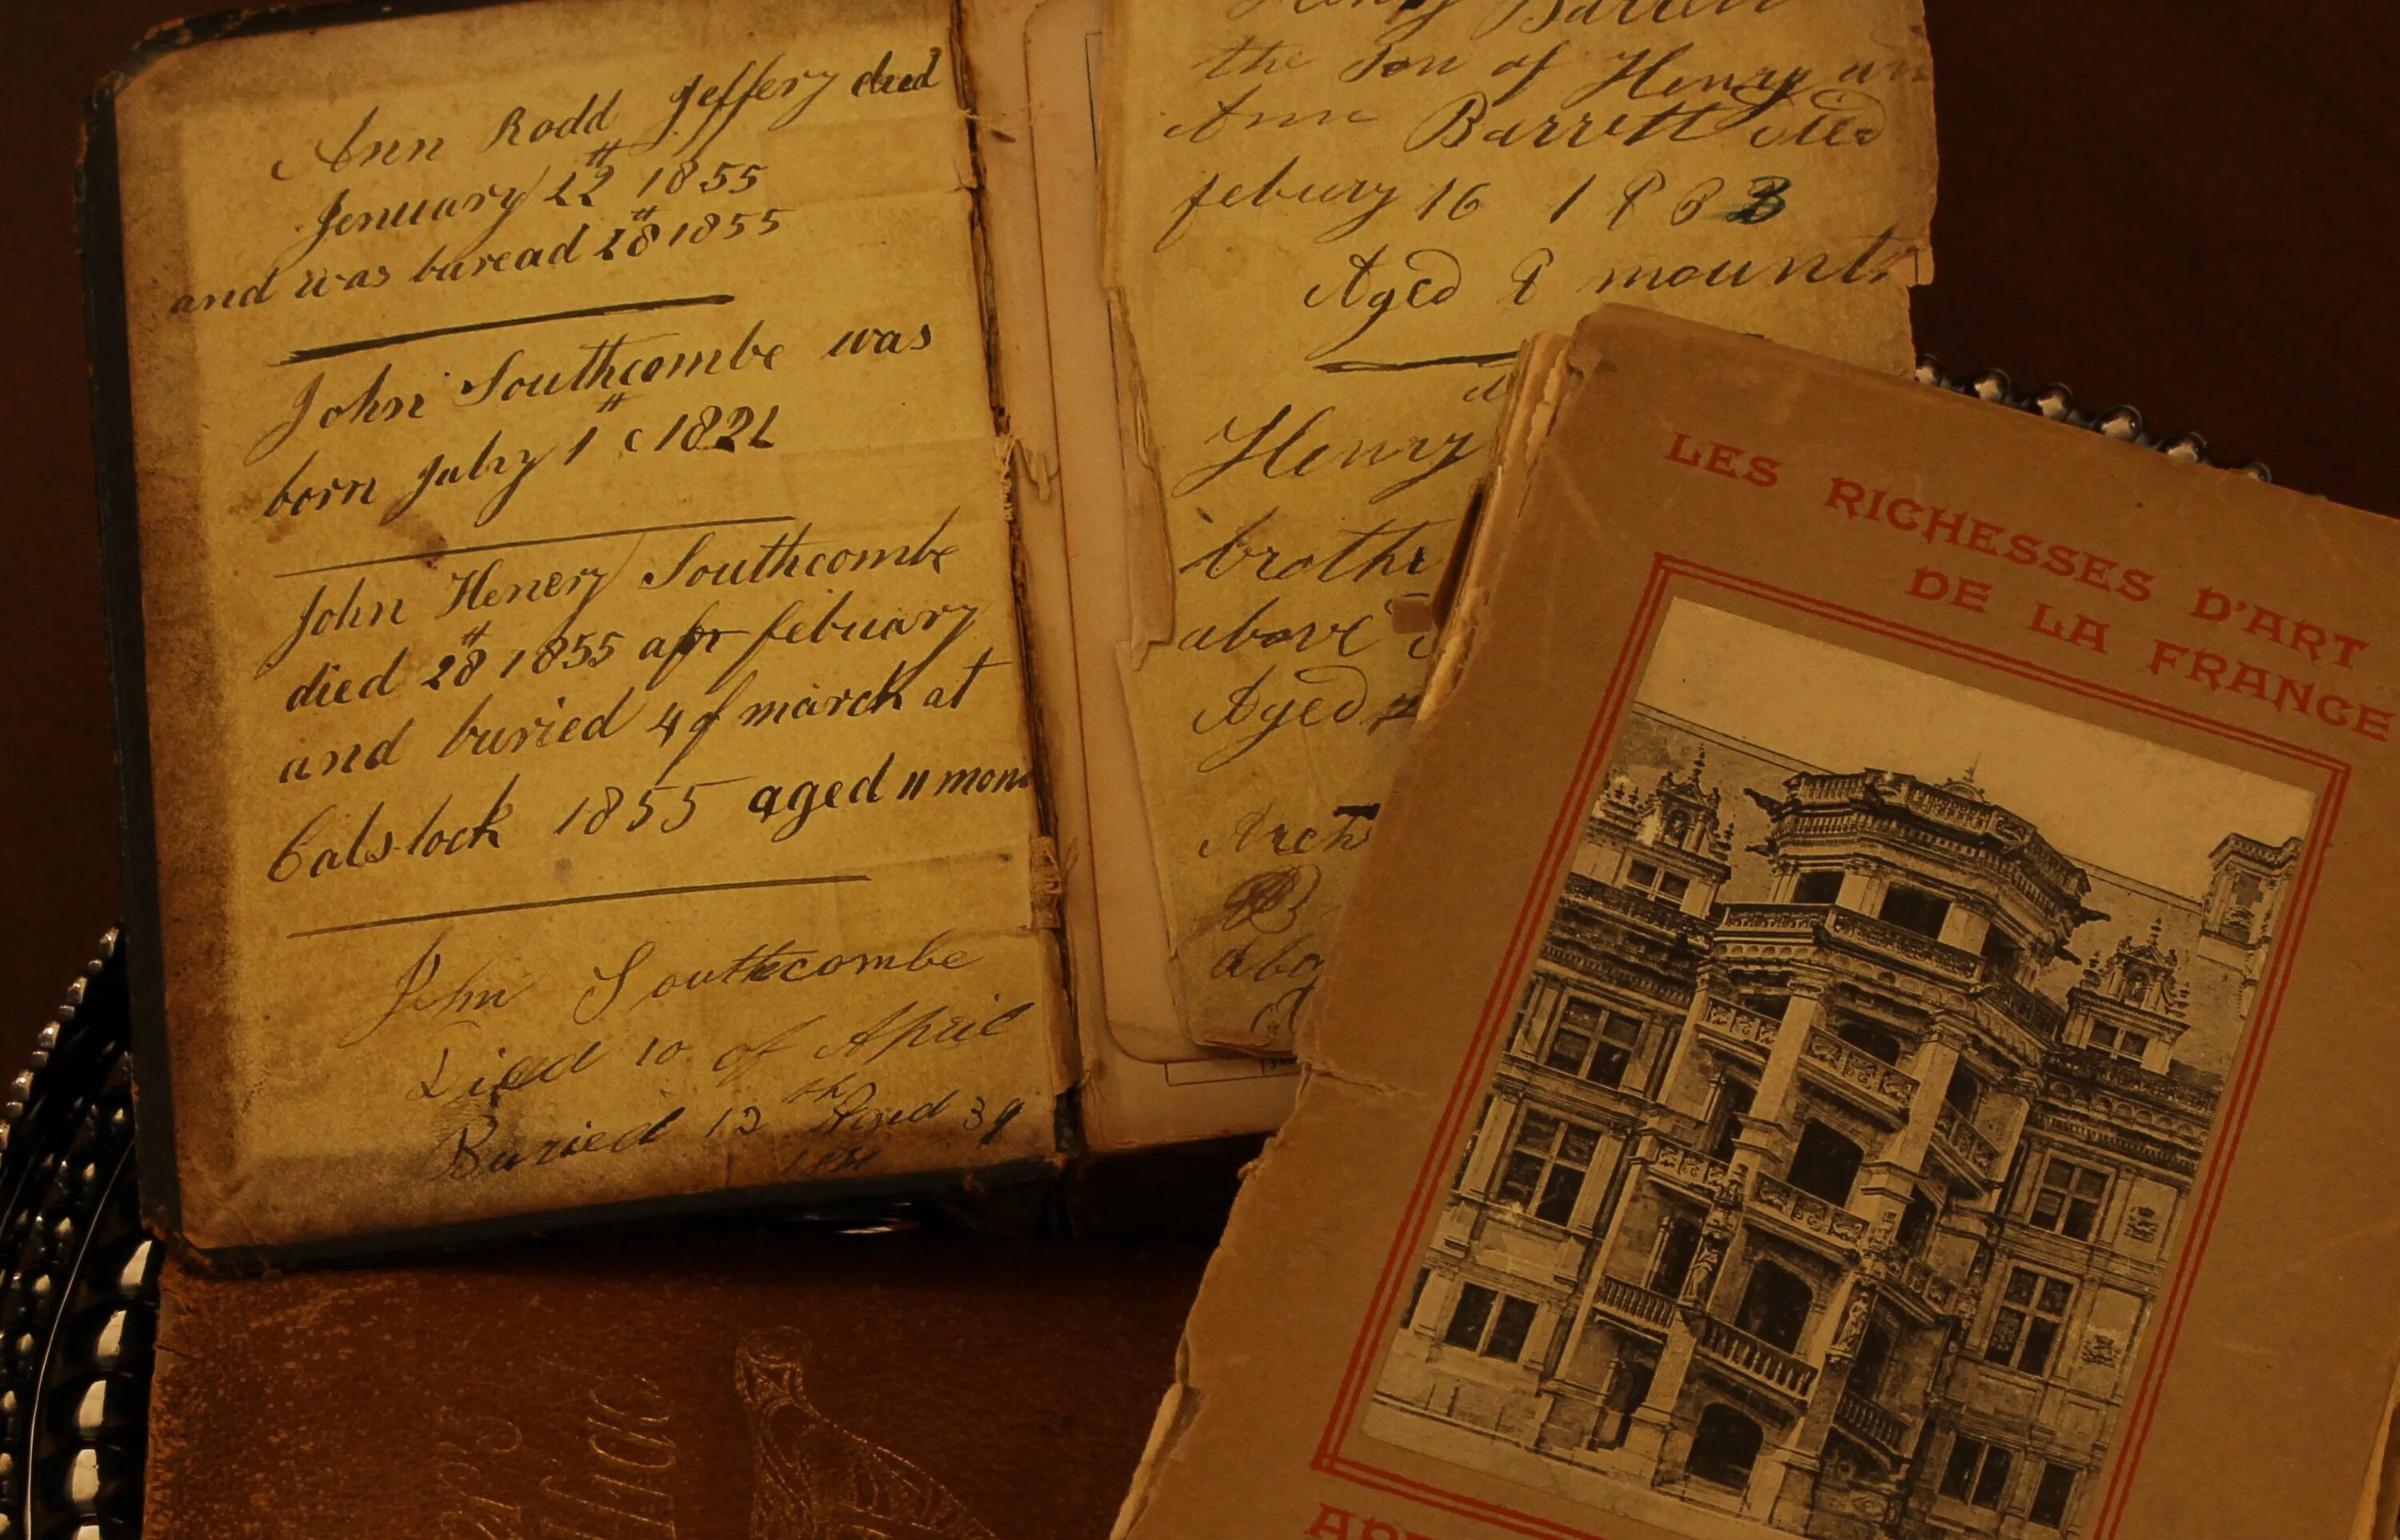 Ann Rodd Jeffery died
Jenuary 22 1855
and was buread 28 1855
John Southcombe was
born July 1 c 1821
John Henery Southcombe
died 28 1855 apr febuary
and buried 4 of march at
Calstock 1855 aged 11 mon
John Southcombe
Died 10 of April
Buried 13 Aged 39
Henry Barrett
the Son of Henry an
Ann Barrett died
febury 16 1883
Aged 8 mounts
Henry
brothe
above
Aged
LES RICHESSES D'ART
DE LA FRANCE